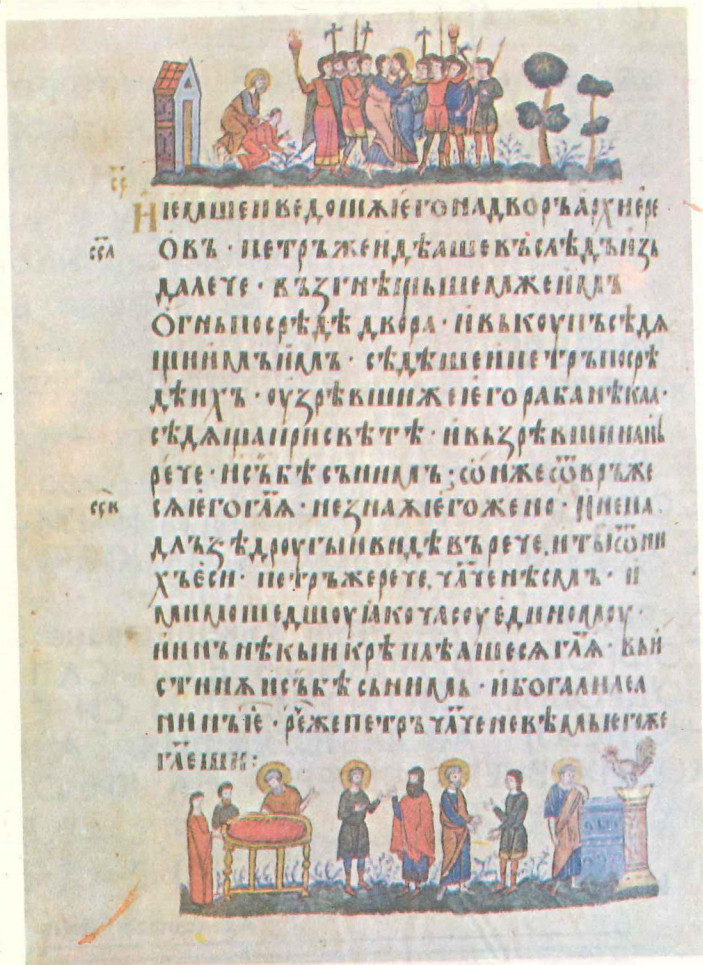 с҃г
И іемшеиведошѫіегонадворъархиере
сѯ҃л овъ · петръжеидѣашевъслѣдъизь
далече · възгнѣщьшемжеимъ
огньпосрѣдѣ двора · ивькоупъсѣдѧ
щиимъимъ · сѣдѣшеипетръпосрѣ
дѣихъ · оузрѣвшижеіегорабанѣкаа ·
сѣдѧщаприсвѣтѣ · ивьзрѣвшинань
рече · исъбѣсънимъ ; ѡнжеѿвръже
сѧіегогл҃ѧ · незнаѫіегожено · Ииена
далъзѣдроугыивидѣвърече . итыѿни
хъеси · петръжерече . чл҃ченѣсмъ · и
мимошедшоуіакочасоуединомоу ·
иинънѣкыикрѣплѣашесѧгл҃ѧ · въи
стинѫисъбѣсьнимь · ибогалилеа
нинъіе · реч҃жепетръчл҃ченевѣмьіегоже
гл҃еши :